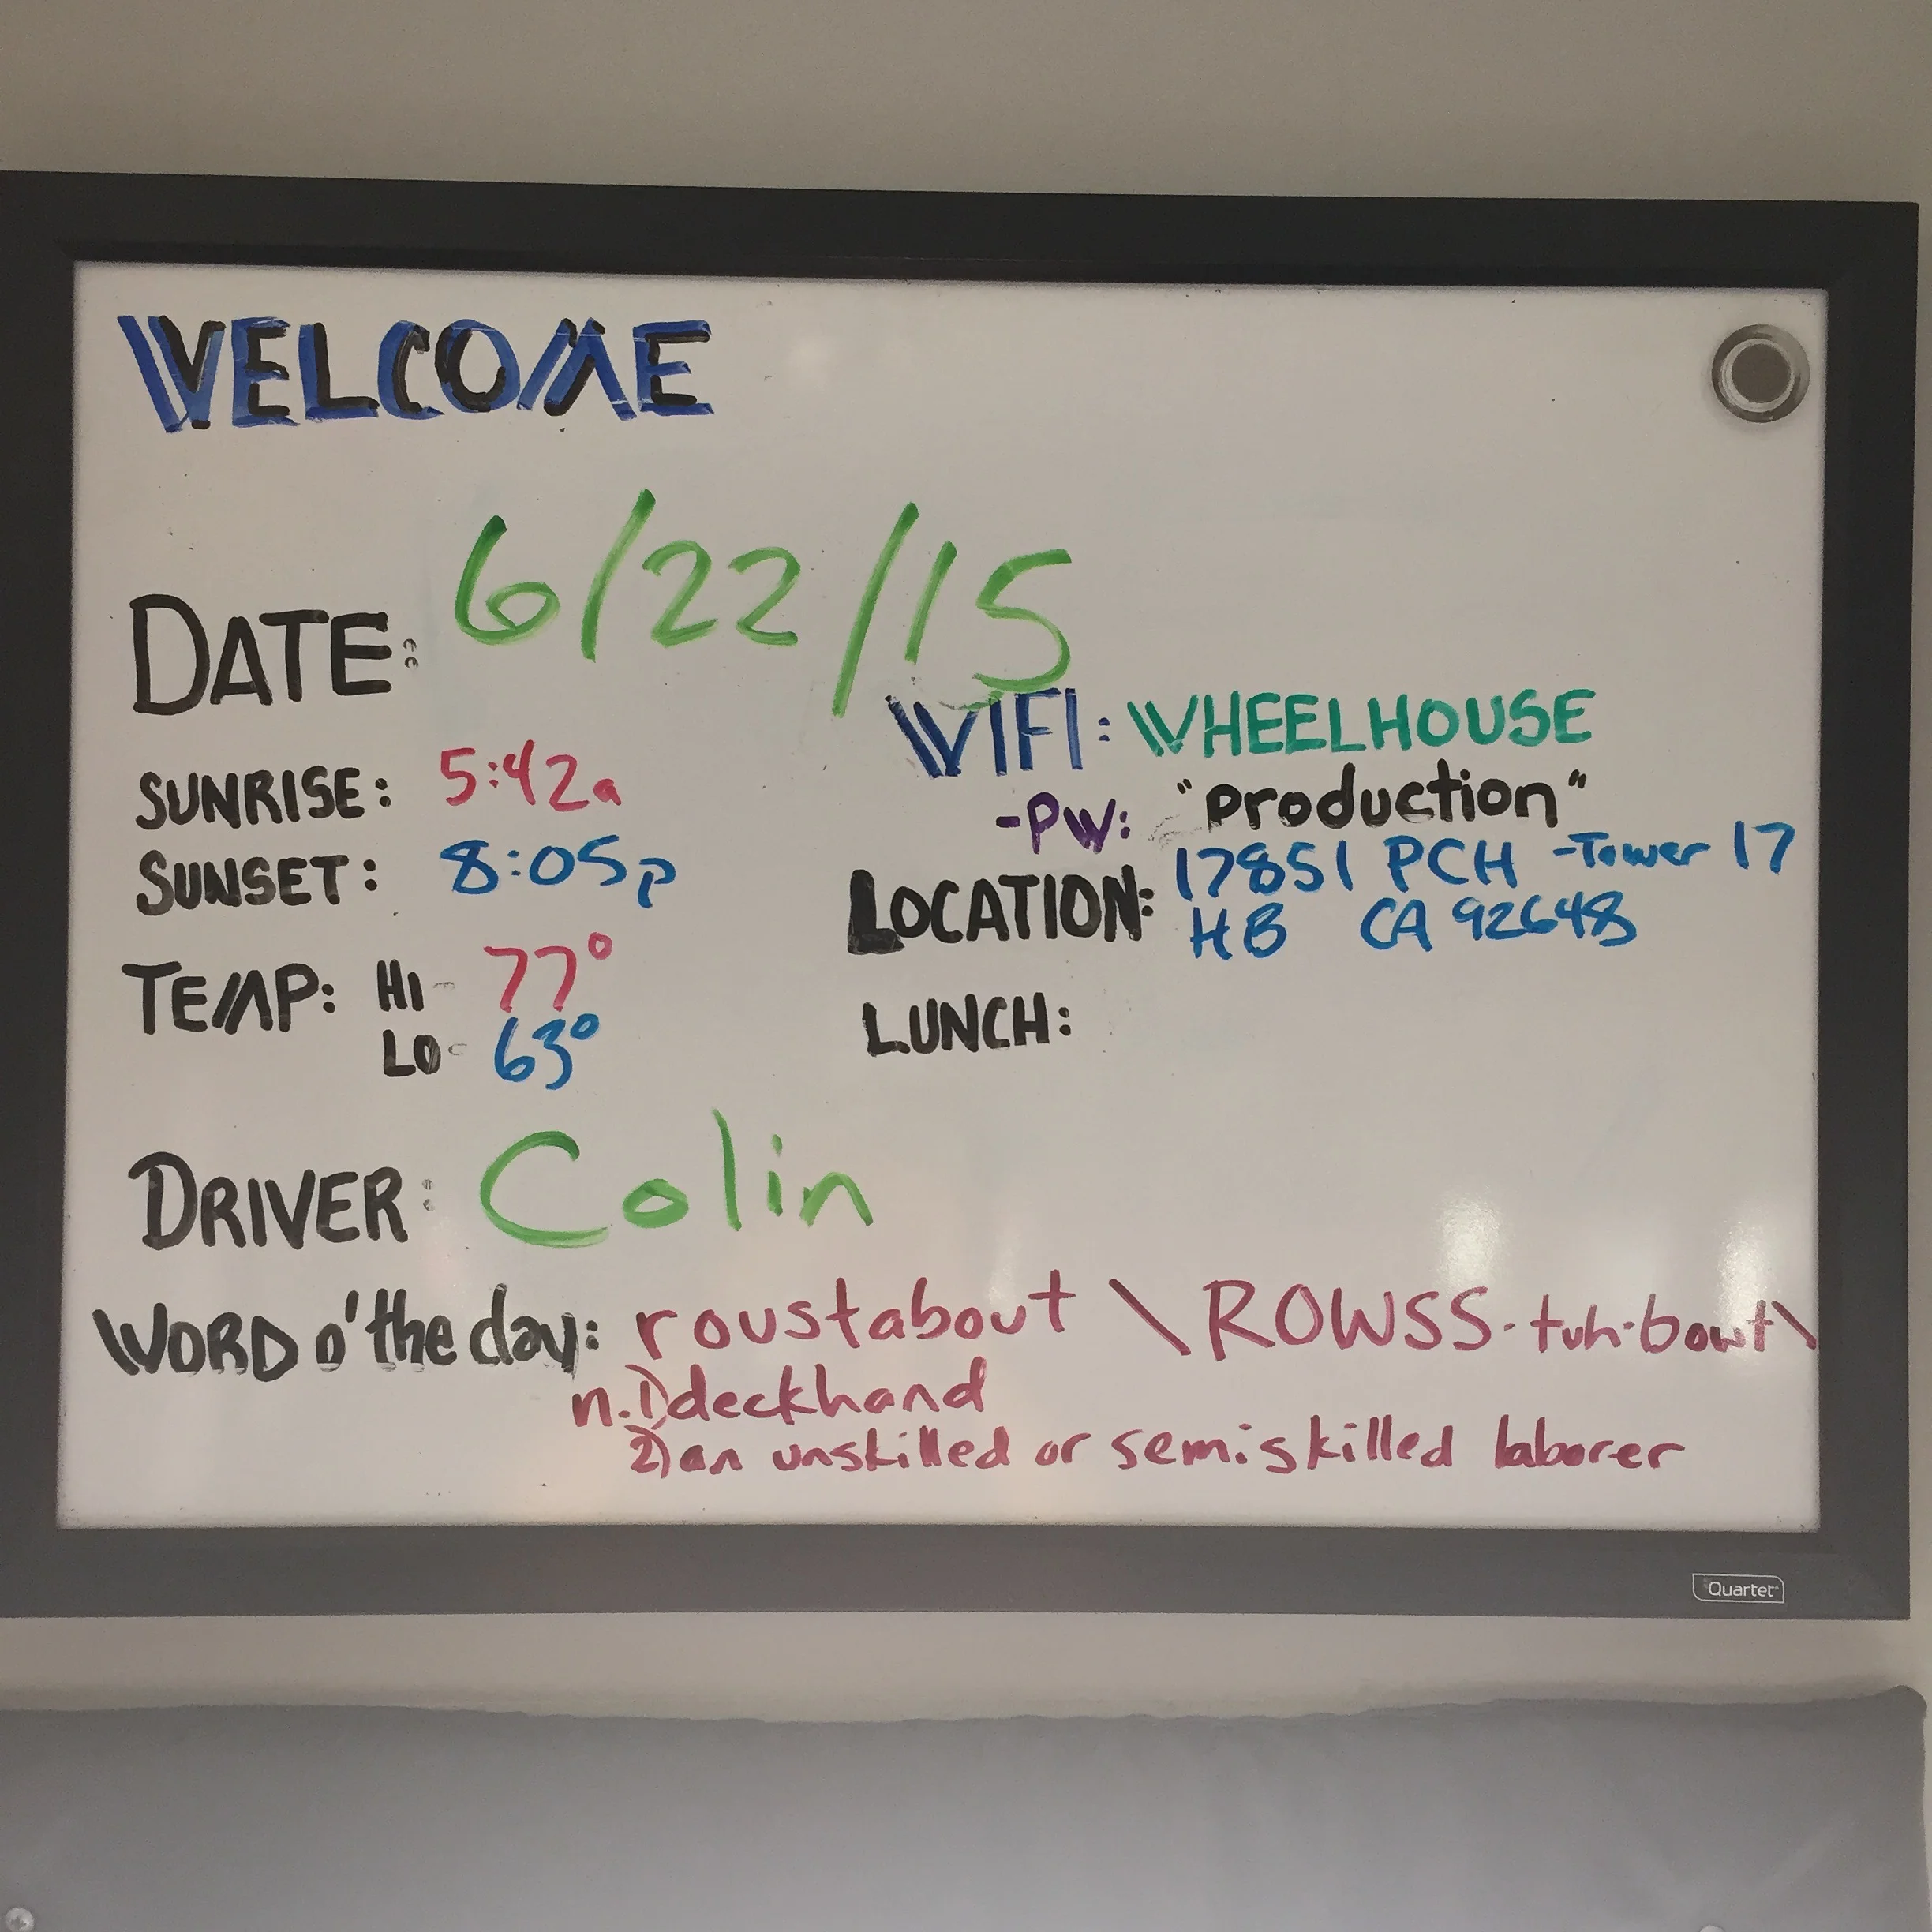 WELCOME
DATE: 6/22/15
SUNRISE: 5:42a
SUNSET: 8:05p
TEMP: HI - 77°
LO - 63°
WIFI: WHEELHOUSE
-PW: "production"
LOCATION: 17851 PCH - Tower 17
HB CA 92648
LUNCH:
DRIVER: Colin
WORD o' the day: roustabout \ROWSS·tuh·bowt\
n. 1) deckhand
2) an unskilled or semiskilled laborer
Quartet